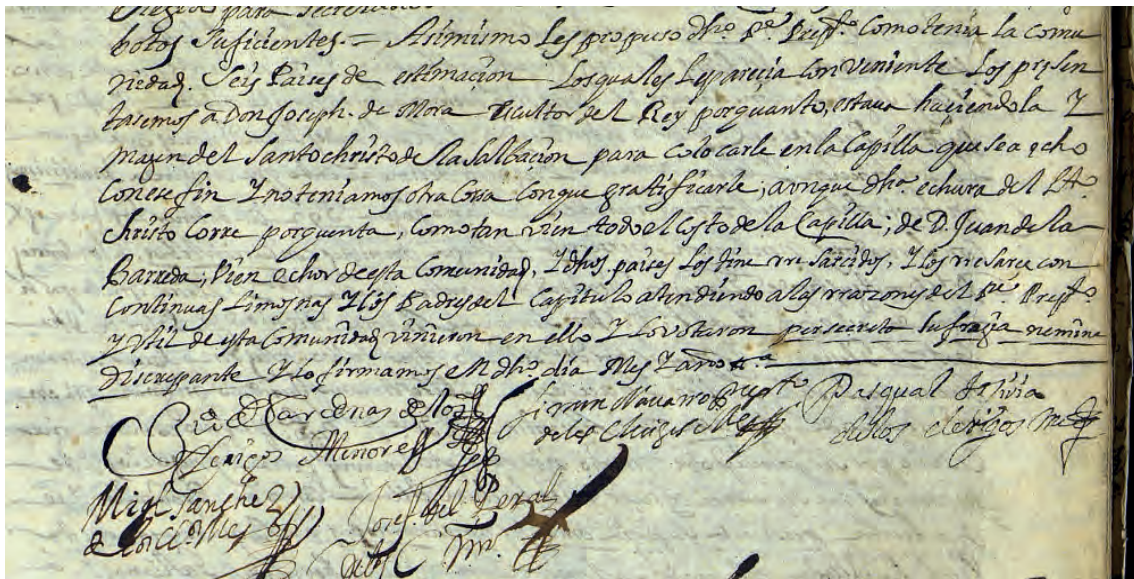 para secretario
botos suficientes = Asimismo les propuso dho. Pe. Prepto. como tenia la comu
niedad. seis Paises de estimaçion los quales le pareçia conveniente los presen
tasemos a Don Joseph. de Mora escultor del Rey por quanto, estava haciendo la Y
majen del santo christo de la salbaçion para colocarle en la Capilla que se a echo
con ese fin Y no teniamos otra cossa con que gratificarle; aunque dha. echura del Sto.
christo corre por quenta, como tan vien todo el costo de la Capilla; de D. Juan de la
Barreda; vien echor de esta Comunidad, Y dhos. paises los tiene rresarcidos, Y los rresarce con
continuas limosnas Y los Padres del Capitulo atendiendo a las rrazones del Pe. Prepto.
y util de esta Comunidad vinieron en ello Y lo votaron per secreta sufragia nemine
discrepante Y lo firmamos en dho. dia Mes Y año
de Cardenas de los
Clerigos Menores
Navarro Prepto.
de los Clerigos Mes
Pasqual de
de los clerigos mes
Migl Sanchez
de los Cos. Mes
Josef. del Peral
de los C. Ms.